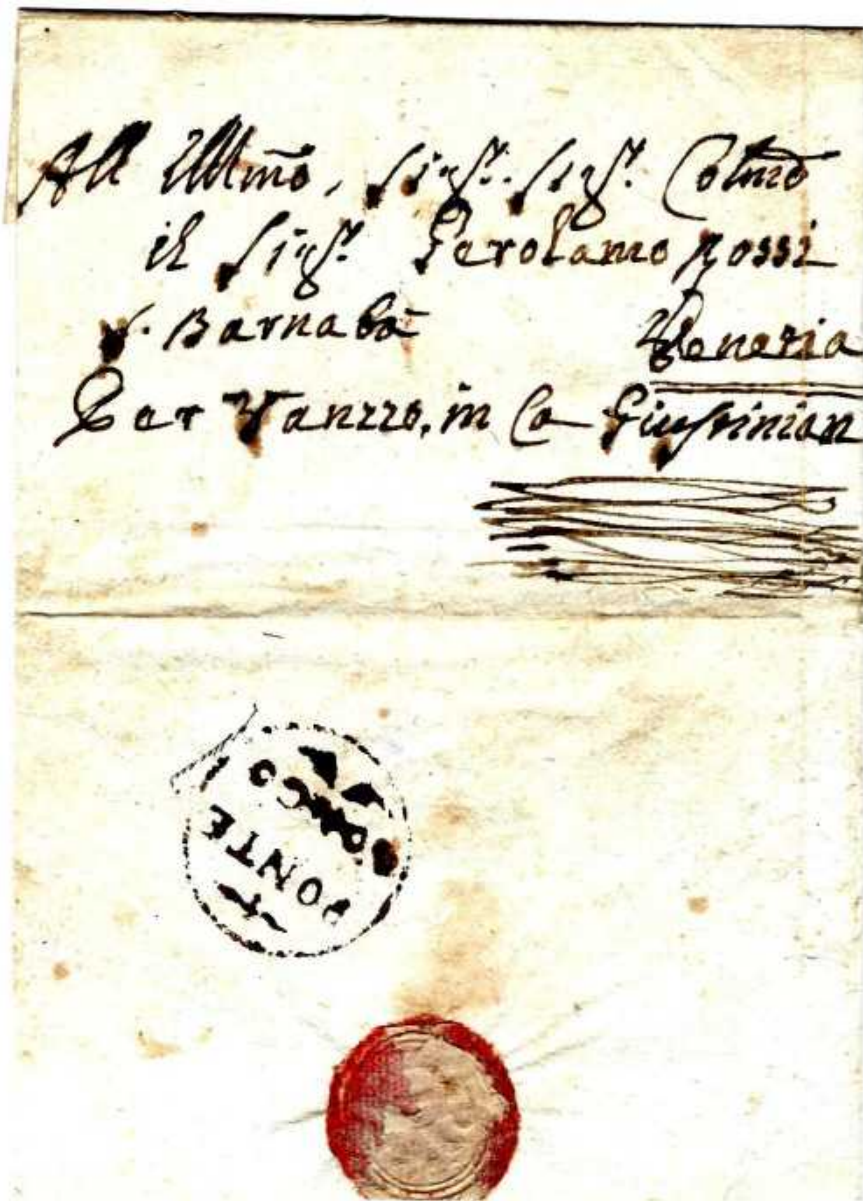 All Illmo, Sigr. Sigr. Colmo
il Sigr. Gerolamo Rossi
S. Barnabà Venezia
Per Vanzzo, in Ca Giustinian
PONTE
LONGO